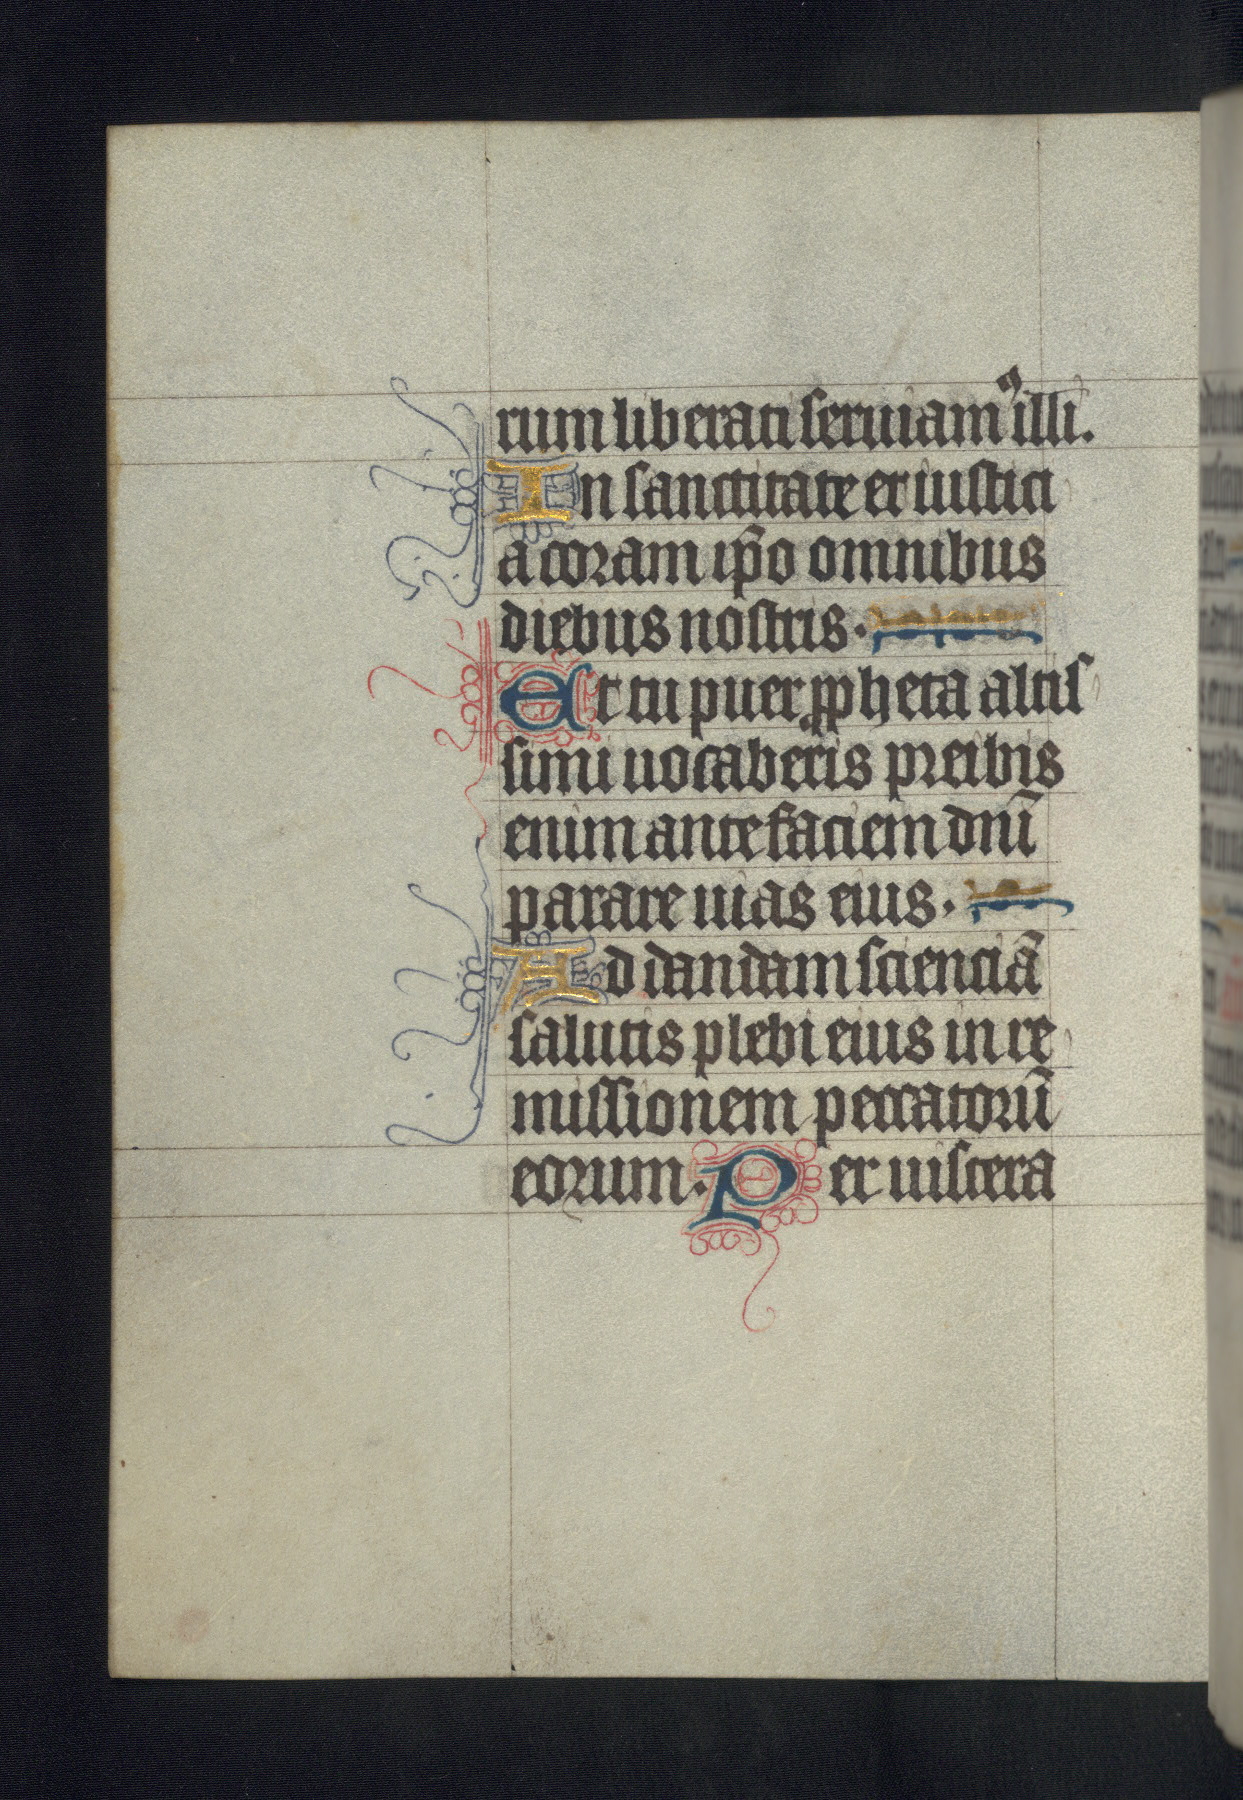 rum liberati seruiamꝰ illi.
In sanctitate et iustici
a coram ip̄o omnibus
diebus nostris.
Et tu puer ꝓpheta altis
simi uocaberis preibis
enim ante faciem dn̄i
parare uias eius.
Ad dandam scienciā
salutis plebi eius in re
missionem peccatorū
eorum. Per uiscera